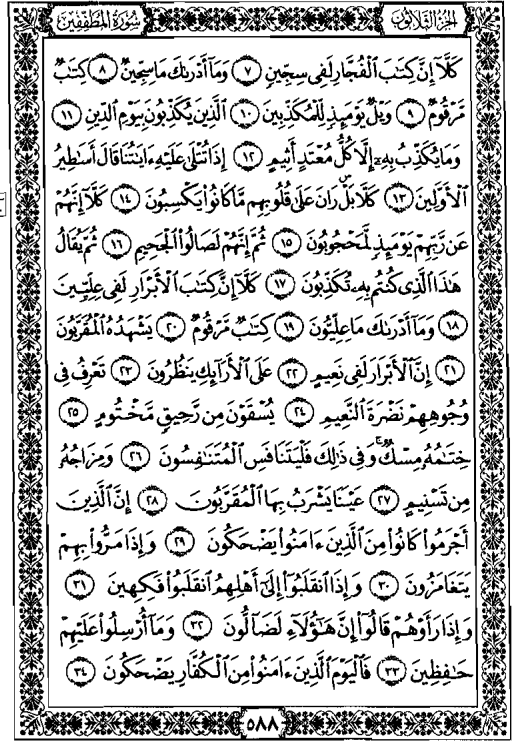 سُورَةُ المُطَفِّفِينَ
الجُزءُ الثَّلَاثُونَ
كَلَّآ إِنَّ كِتَٰبَ ٱلْفُجَّارِ لَفِى سِجِّينٍ ٧ وَمَآ أَدْرَىٰكَ مَا سِجِّينٌ ٨ كِتَٰبٌ
مَّرْقُومٌ ٩ وَيْلٌ يَوْمَئِذٍ لِّلْمُكَذِّبِينَ ١٠ ٱلَّذِينَ يُكَذِّبُونَ بِيَوْمِ ٱلدِّينِ ١١
وَمَا يُكَذِّبُ بِهِۦٓ إِلَّا كُلُّ مُعْتَدٍ أَثِيمٍ ١٢ إِذَا تُتْلَىٰ عَلَيْهِ ءَايَٰتُنَا قَالَ أَسَٰطِيرُ
ٱلْأَوَّلِينَ ١٣ كَلَّا بَلْ ۜ رَانَ عَلَىٰ قُلُوبِهِم مَّا كَانُوا۟ يَكْسِبُونَ ١٤ كَلَّآ إِنَّهُمْ
عَن رَّبِّهِمْ يَوْمَئِذٍ لَّمَحْجُوبُونَ ١٥ ثُمَّ إِنَّهُمْ لَصَالُوا۟ ٱلْجَحِيمِ ١٦ ثُمَّ يُقَالُ
هَٰذَا ٱلَّذِى كُنتُم بِهِۦ تُكَذِّبُونَ ١٧ كَلَّآ إِنَّ كِتَٰبَ ٱلْأَبْرَارِ لَفِى عِلِّيِّينَ
١٨ وَمَآ أَدْرَىٰكَ مَا عِلِّيُّونَ ١٩ كِتَٰبٌ مَّرْقُومٌ ٢٠ يَشْهَدُهُ ٱلْمُقَرَّبُونَ
٢١ إِنَّ ٱلْأَبْرَارَ لَفِى نَعِيمٍ ٢٢ عَلَى ٱلْأَرَآئِكِ يَنظُرُونَ ٢٣ تَعْرِفُ فِى
وُجُوهِهِمْ نَضْرَةَ ٱلنَّعِيمِ ٢٤ يُسْقَوْنَ مِن رَّحِيقٍ مَّخْتُومٍ ٢٥
خِتَٰمُهُۥ مِسْكٌ ۚ وَفِى ذَٰلِكَ فَلْيَتَنَافَسِ ٱلْمُتَنَٰفِسُونَ ٢٦ وَمِزَاجُهُۥ
مِن تَسْنِيمٍ ٢٧ عَيْنًا يَشْرَبُ بِهَا ٱلْمُقَرَّبُونَ ٢٨ إِنَّ ٱلَّذِينَ
أَجْرَمُوا۟ كَانُوا۟ مِنَ ٱلَّذِينَ ءَامَنُوا۟ يَضْحَكُونَ ٢٩ وَإِذَا مَرُّوا۟ بِهِمْ
يَتَغَامَزُونَ ٣٠ وَإِذَا ٱنقَلَبُوٓا۟ إِلَىٰٓ أَهْلِهِمُ ٱنقَلَبُوا۟ فَكِهِينَ ٣١
وَإِذَا رَأَوْهُمْ قَالُوٓا۟ إِنَّ هَٰٓؤُلَآءِ لَضَآلُّونَ ٣٢ وَمَآ أُرْسِلُوا۟ عَلَيْهِمْ
حَٰفِظِينَ ٣٣ فَٱلْيَوْمَ ٱلَّذِينَ ءَامَنُوا۟ مِنَ ٱلْكُفَّارِ يَضْحَكُونَ ٣٤
٥٨٨